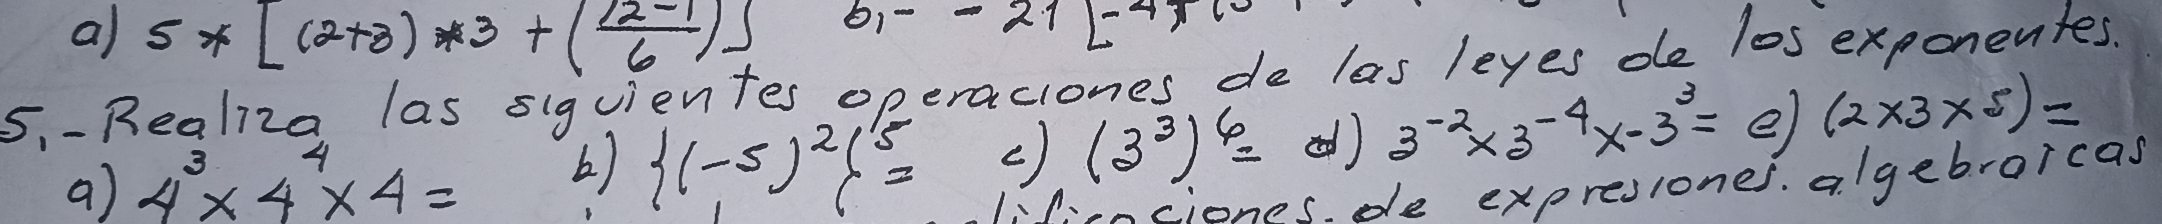 a) 5 * [(2+3) * 3 + (12-1/6)] b,- - 21 [-4
5.- Realiza las siguientes operaciones de las leyes de los exponentes.
a) 4³ x 4⁴ x 4 = b) {(-5)²}⁵ = c) (3³)⁶ = d) 3⁻² x 3⁻⁴ x -3³ = e) (2x3x5) =
ciones. de expresiones. algebraicas